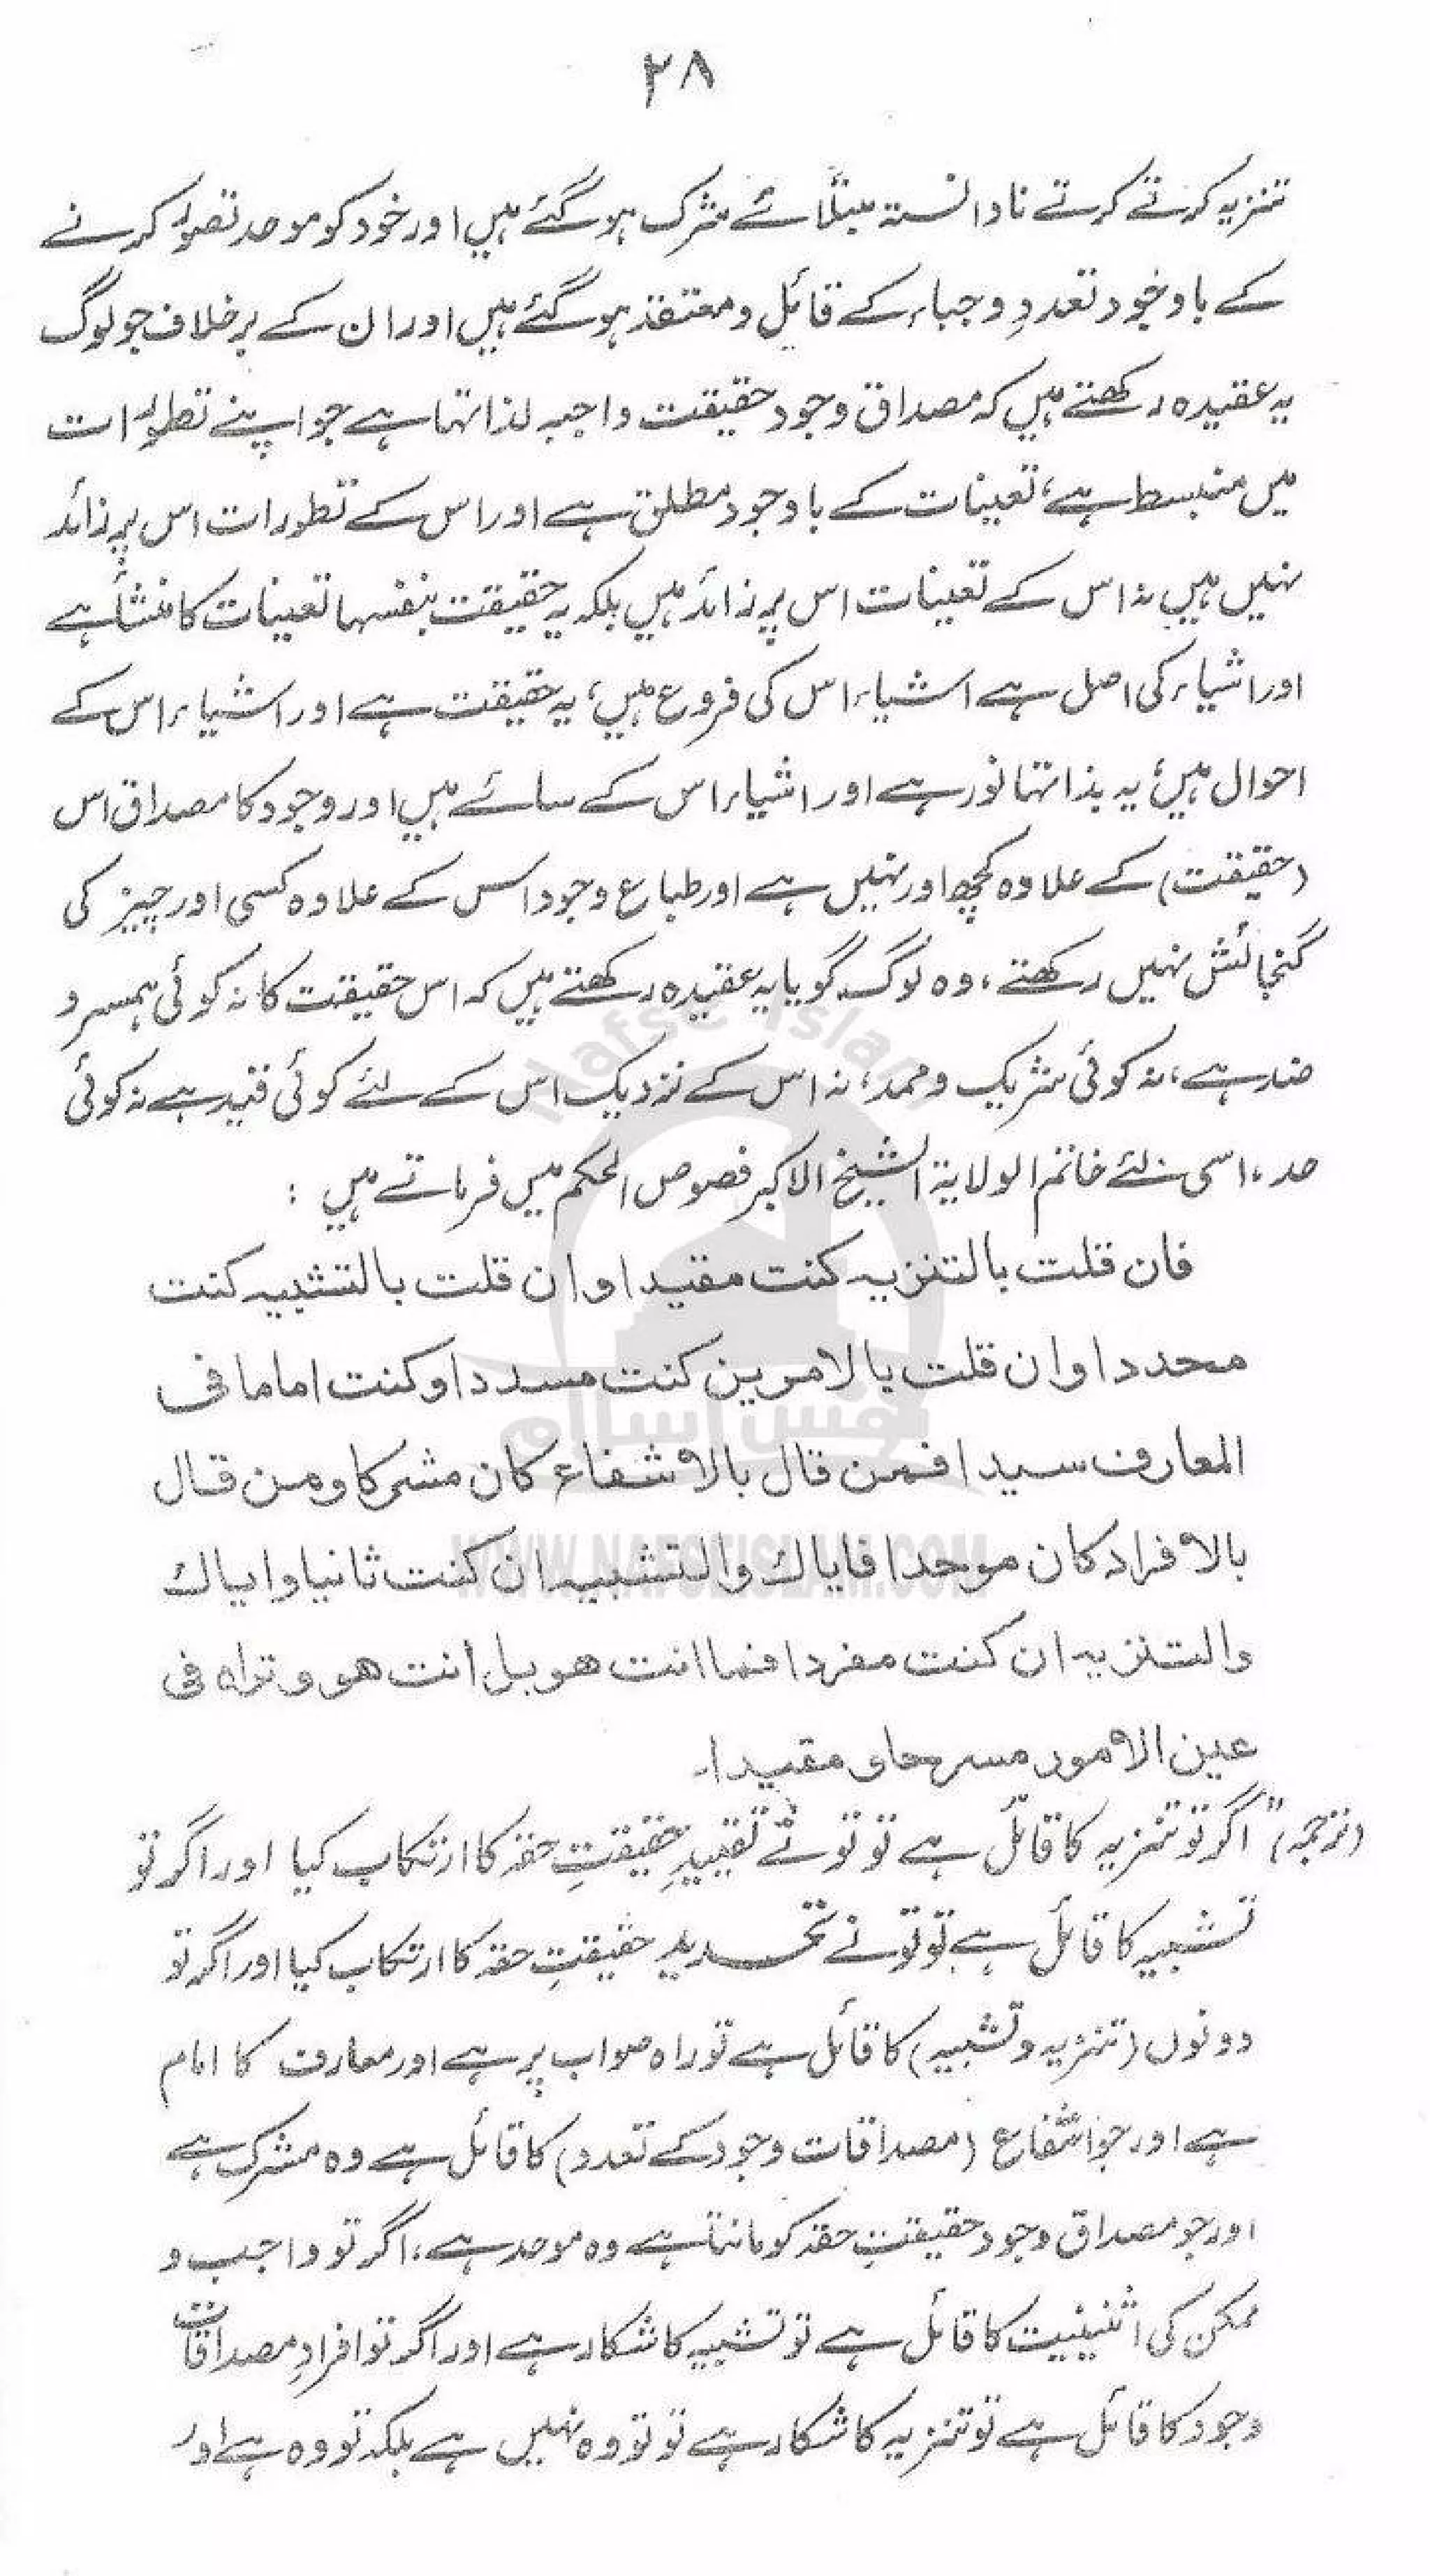 ۲۸
تنزیہ کرتے کرتے نادانستہ مبتلائے شرک ہوگئے ہیں اور خود کو موحد تصور کرنے
کے باوجود تعددِ وجباء کے قائل و معتقد ہوگئے ہیں اور ان کے برخلاف جو لوگ
یہ عقیدہ رکھتے ہیں کہ مصداق وجود حقیقت واجبہ لذاتہا ہے جو اپنے تطورات
میں منبسط ہے، تعینات کے باوجود مطلق ہے اور اس کے تطورات اس پر زائد
نہیں ہیں نہ اس کے تعینات اس پر زائد ہیں بلکہ یہ حقیقت بنفسہا تعینات کا منشأ ہے
اور اشیاء کی اصل ہے اشیاء اس کی فروع ہیں، یہ حقیقت ہے اور اشیاء اس کے
احوال ہیں؛ یہ بذاتہا نور ہے اور اشیاء اس کے سائے ہیں اور وجود کا مصداق اس
(حقیقت) کے علاوہ کچھ اور نہیں ہے اور طباع وجود اس کے علاوہ کسی اور چیز کی
گنجائش نہیں رکھتے، وہ لوگ گویا یہ عقیدہ رکھتے ہیں کہ اس حقیقت کا نہ کوئی ہمسر و
ضد ہے، نہ کوئی شریک و ممد، نہ اس کے نزدیک اس کے لئے کوئی قید ہے نہ کوئی
حد، اسی لئے خاتم الولایۃ الشیخ الاکبر فصوص الحکم میں فرماتے ہیں :
فان قلت بالتنزیہ کنت مقیدا وان قلت بالتشبیہ کنت
محددا وان قلت بالامرین کنت مسددا وکنت اماما فی
المعارف سیدا فمن قال بالاشفاع کان مشرکا ومن قال
بالافراد کان موحدا فایاك والتشبیہ ان کنت ثانیا وایاك
والتنزیہ ان کنت مفردا فما انت هو بل انت هو و تراہ فی
عین الامور مسرحا و مقیدا۔
(ترجمہ) "اگر تو تنزیہ کا قائل ہے تو تو نے تقییدِ حقیقتِ حقہ کا ارتکاب کیا اور اگر تو
تشبیہ کا قائل ہے تو تو نے تحدید حقیقتِ حقہ کا ارتکاب کیا اور اگر تو
دونوں (تنزیہ و تشبیہ) کا قائل ہے تو راہ صواب پر ہے اور معارف کا امام
ہے اور جو اشفاع (مصداقات وجود کے تعدد) کا قائل ہے وہ مشرک ہے
اور جو مصداق وجود حقیقتِ حقہ کو مانتا ہے وہ موحد ہے، اگر تو واجب و
ممکن کی اثنینیت کا قائل ہے تو تشبیہ کا شکار ہے اور اگر تو افرادِ مصداقات
وجود کا قائل ہے تو تنزیہ کا شکار ہے تو تو وہ نہیں ہے بلکہ تو وہ ہے اور
Nafse Islam
نفس اسلام
WWW.NAFSEISLAM.COM